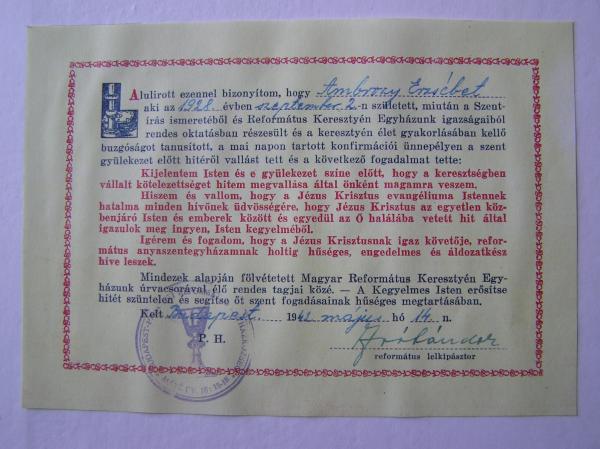 Alulirott ezennel bizonyítom, hogy Ambrozy Erzsébet
aki az 1928. évben szeptember 2.-n született, miután a Szent-
írás ismeretéből és Református Keresztyén Egyházunk igazságaiból
rendes oktatásban részesült és a keresztyén élet gyakorlásában kellő
buzgóságot tanusított, a mai napon tartott konfirmációi ünnepélyen a szent
gyülekezet előtt hitéről vallást tett és a következő fogadalmat tette:
Kijelentem Isten és e gyülekezet színe előtt, hogy a keresztségben
vállalt kötelezettséget hitem megvallása által önként magamra veszem.
Hiszem és vallom, hogy a Jézus Krisztus evangéliuma Istennek
hatalma minden hívőnek üdvösségére, hogy Jézus Krisztus az egyetlen köz-
benjáró Isten és emberek között és egyedül az Ő halálába vetett hit által
igazulok meg ingyen, Isten kegyelméből.
Igérem és fogadom, hogy a Jézus Krisztusnak igaz követője, refor-
mátus anyaszentegyházamnak holtig hűséges, engedelmes és áldozatkész
híve leszek.
Mindezek alapján fölvétetett Magyar Református Keresztyén Egy-
házunk úrvacsorával élő rendes tagjai közé. — A Kegyelmes Isten erősítse
hitét szüntelen és segítse őt szent fogadásainak hűséges megtartásában.
Kelt Budapest. 1942 május hó 14 n.
P. H.
református lelkipásztor